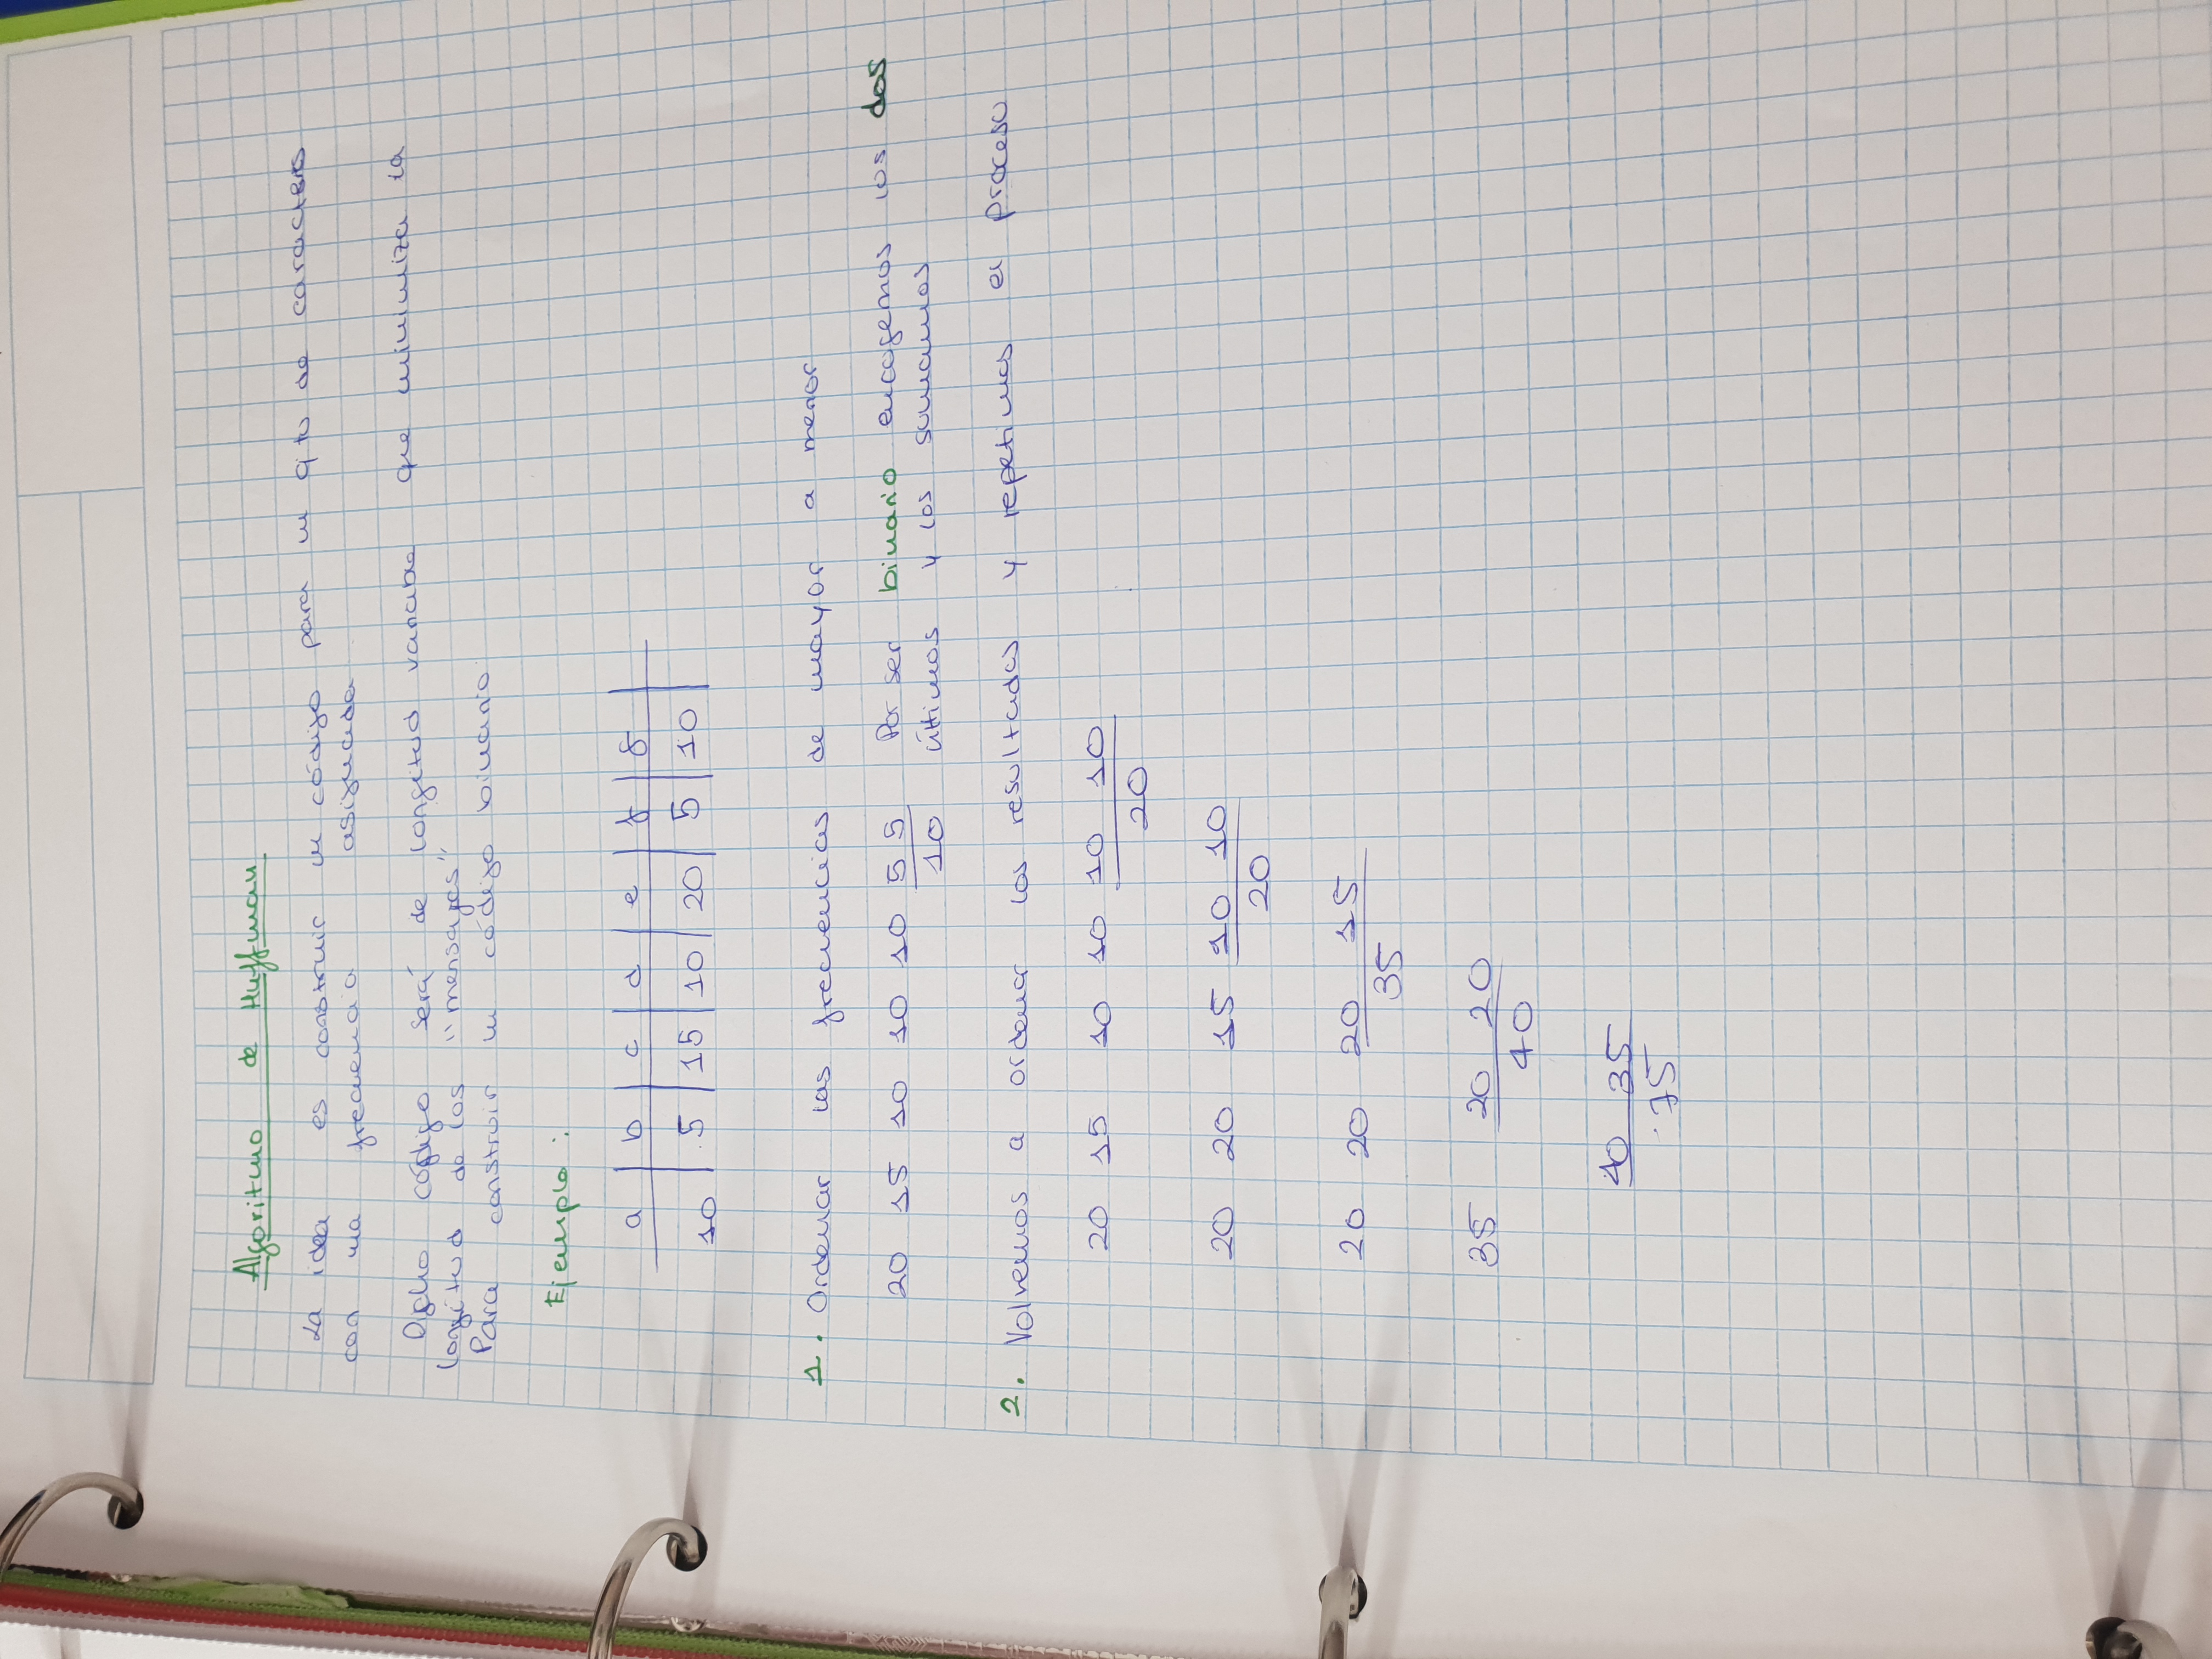 Algoritmo de Huffman
La idea es construir un código para un cjto de caracteres
con una frecuencia asignada
Dicho código será de longitud variable que minimiza la
longitud de los "mensajes"
Para construir un código binario
Ejemplo:
a | b | c | d | e | f | g
10 | 5 | 15 | 10 | 20 | 5 | 10
1. Ordenar las frecuencias de mayor a menor
20 15 10 10 10 5 5 Por ser binario encogemos los dos
10 últimos y los sumamos
2. Volvemos a ordenar los resultados y repetimos el proceso
20 15 10 10 10 10
20
20 20 15 10 10
20
20 20 20 15
35
35 20 20
40
40 35
75